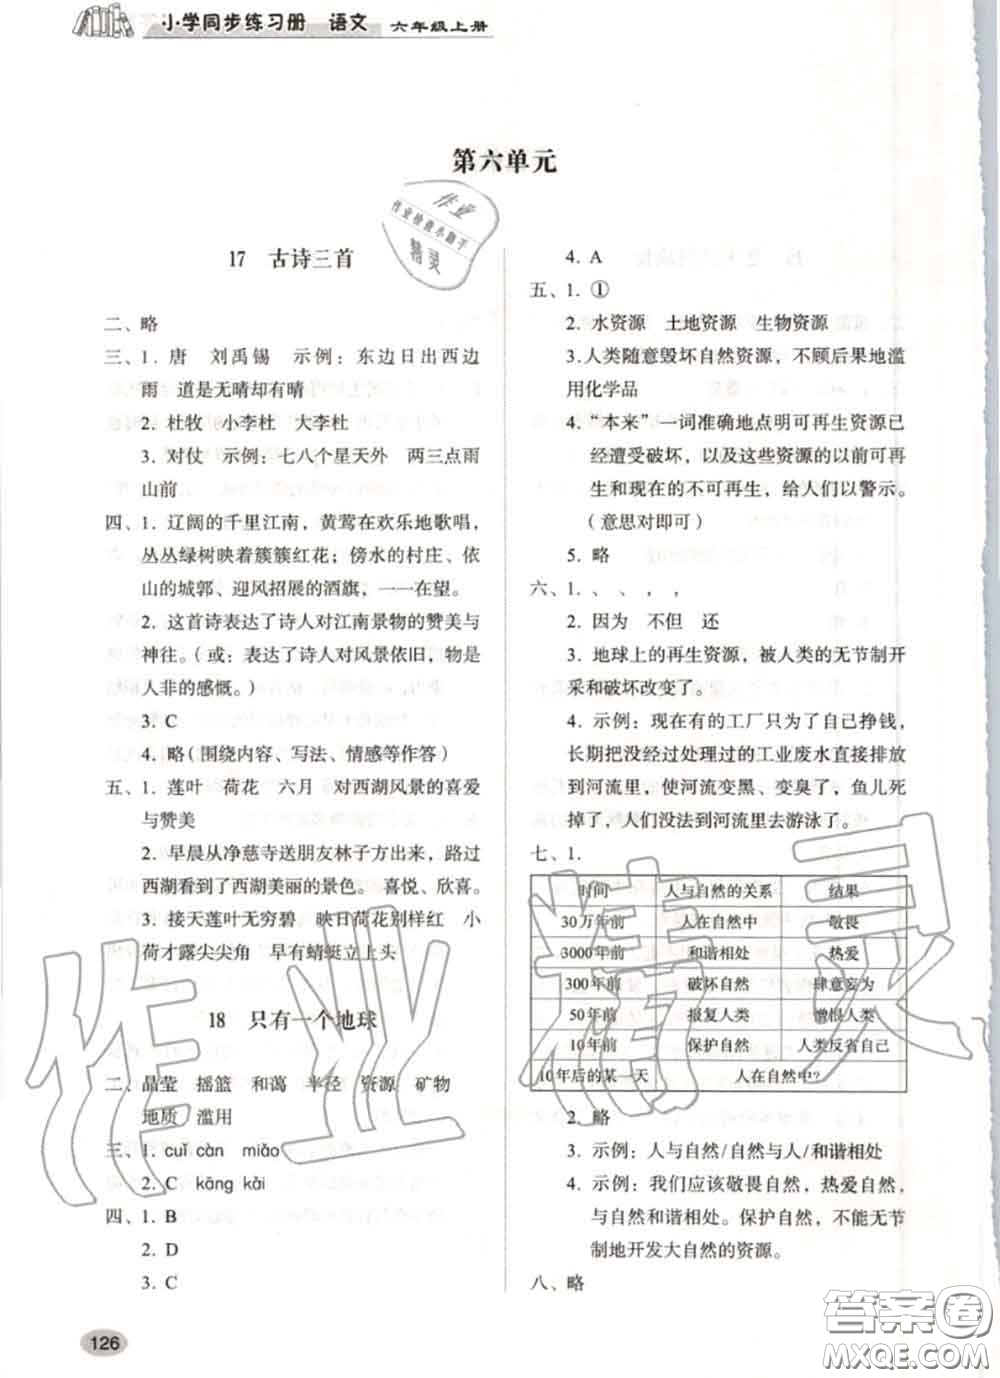 小学同步练习册 语文 六年级上册
第六单元
作业
作业检查小助手
精灵
17 古诗三首
二、略
三、1. 唐 刘禹锡 示例：东边日出西边
雨 道是无晴却有晴
2. 杜牧 小李杜 大李杜
3. 对仗 示例：七八个星天外 两三点雨
山前
四、1. 辽阔的千里江南，黄莺在欢乐地歌唱，
丛丛绿树映着簇簇红花；傍水的村庄、依
山的城郭、迎风招展的酒旗，一一在望。
2. 这首诗表达了诗人对江南景物的赞美与
神往。（或：表达了诗人对风景依旧，物是
人非的感慨。）
3. C
4. 略（围绕内容、写法、情感等作答）
五、1. 莲叶 荷花 六月 对西湖风景的喜爱
与赞美
2. 早晨从净慈寺送朋友林子方出来，路过
西湖看到了西湖美丽的景色。 喜悦、欣喜。
3. 接天莲叶无穷碧 映日荷花别样红 小
荷才露尖尖角 早有蜻蜓立上头
18 只有一个地球
二、晶莹 摇篮 和蔼 半径 资源 矿物
地质 滥用
三、1. cuǐ càn miǎo
2. C kāng kǎi
四、1. B
2. D
3. C
4. A
五、1. ①
2. 水资源 土地资源 生物资源
3.人类随意毁坏自然资源，不顾后果地滥
用化学品
4. “本来”一词准确地点明可再生资源已
经遭受破坏，以及这些资源的以前可再
生和现在的不可再生，给人们以警示。
（意思对即可）
5. 略
六、1. 、 、 ， ，
2. 因为 不但 还
3. 地球上的再生资源，被人类的无节制开
采和破坏改变了。
4. 示例：现在有的工厂只为了自己挣钱，
长期把没经过处理过的工业废水直接排放
到河流里，使河流变黑、变臭了，鱼儿死
掉了，人们没法到河流里去游泳了。
七、1.
时间 人与自然的关系 结果
30万年前 人在自然中 敬畏
3000年前 和谐相处 热爱
300年前 破坏自然 肆意妄为
50年前 报复人类 憎恨人类
10年前 保护自然 人类反省自己
10年后的某一天 人在自然中？
2. 略
3. 示例：人与自然/自然与人/和谐相处
4. 示例：我们应该敬畏自然，热爱自然，
与自然和谐相处。保护自然，不能无节
制地开发大自然的资源。
八、略
作业精灵
126
答案圈
MXQE.COM